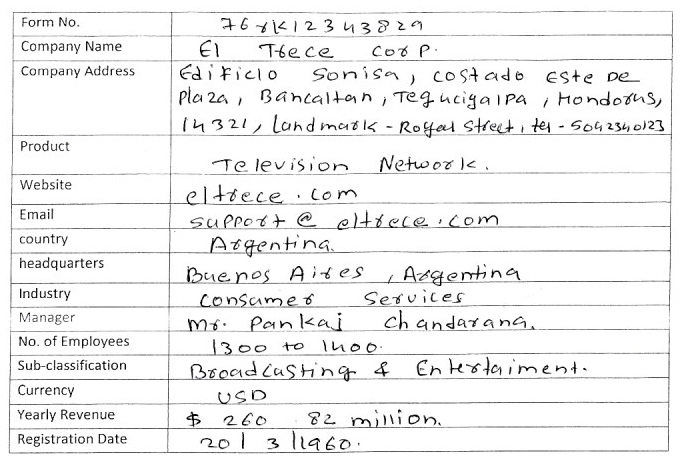 Form No. 76rk12343829
Company Name El Trece Corp.
Company Address Edificio Sonisa, costado Este De
Plaza, Bancaltan, Tegucigalpa, Hondorus,
14321, Landmark - Royal Street, tel - 5042340123
Product Television Network.
Website eltrece.com
Email support@eltrece.com
country Argentina.
headquarters Buenos Aires, Argentina
Industry Consumer Services
Manager Mr. Pankaj Chandarana.
No. of Employees 1300 to 1400.
Sub-classification Broadcasting & Entertaiment.
Currency USD
Yearly Revenue $ 260 82 million.
Registration Date 20/3/1960.